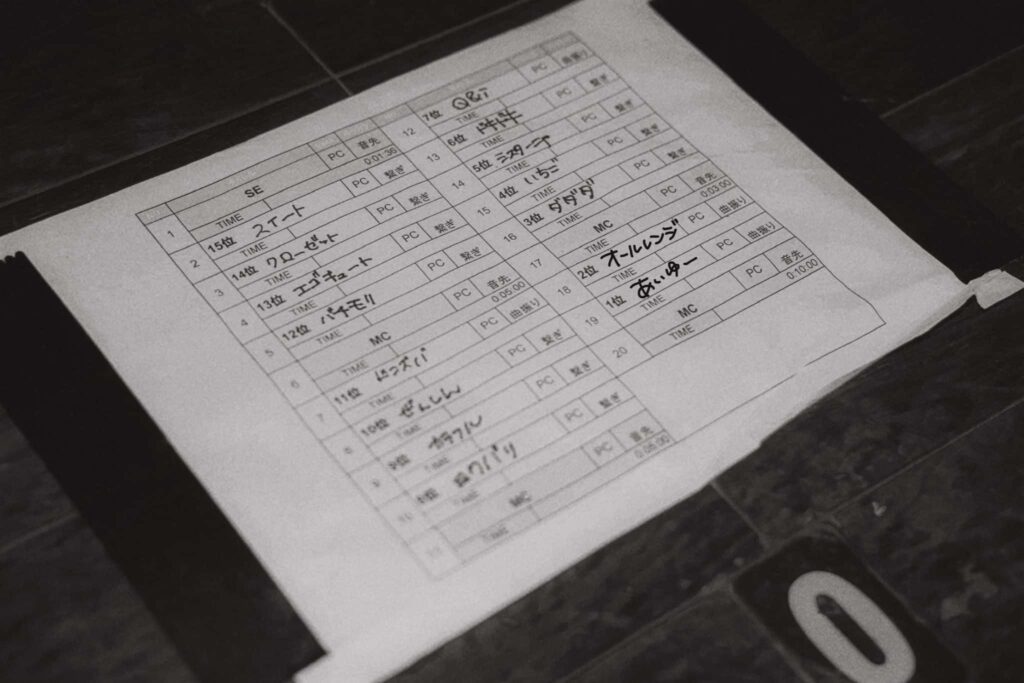 1 SE PC 音先
TIME 0:01:30
2 15位 スイート PC 繋ぎ
TIME
3 14位 クローゼット PC 繋ぎ
TIME
4 13位 エゴキュート PC 繋ぎ
TIME
5 12位 バチモリ PC 繋ぎ
TIME
6 MC PC 音先
TIME 0:05:00
7 11位 ドンズバ PC 曲振り
TIME
8 10位 ぜんしん PC 繋ぎ
TIME
9 9位 カラフル PC 繋ぎ
TIME
10 8位 PC 繋ぎ
TIME
11 MC PC 音先
TIME 0:05:00
12 7位 Q&i PC 曲振り
TIME
13 6位 ドキドキ PC 繋ぎ
TIME
14 5位 ミスターニナ PC 繋ぎ
TIME
15 4位 いちご PC 繋ぎ
TIME
16 3位 ダダダ PC 繋ぎ
TIME
17 MC PC 音先
TIME 0:03:00
18 2位 オールレンジ PC 曲振り
TIME
19 1位 あいゆー PC 曲振り
TIME
20 MC PC 音先
TIME 0:10:00
0